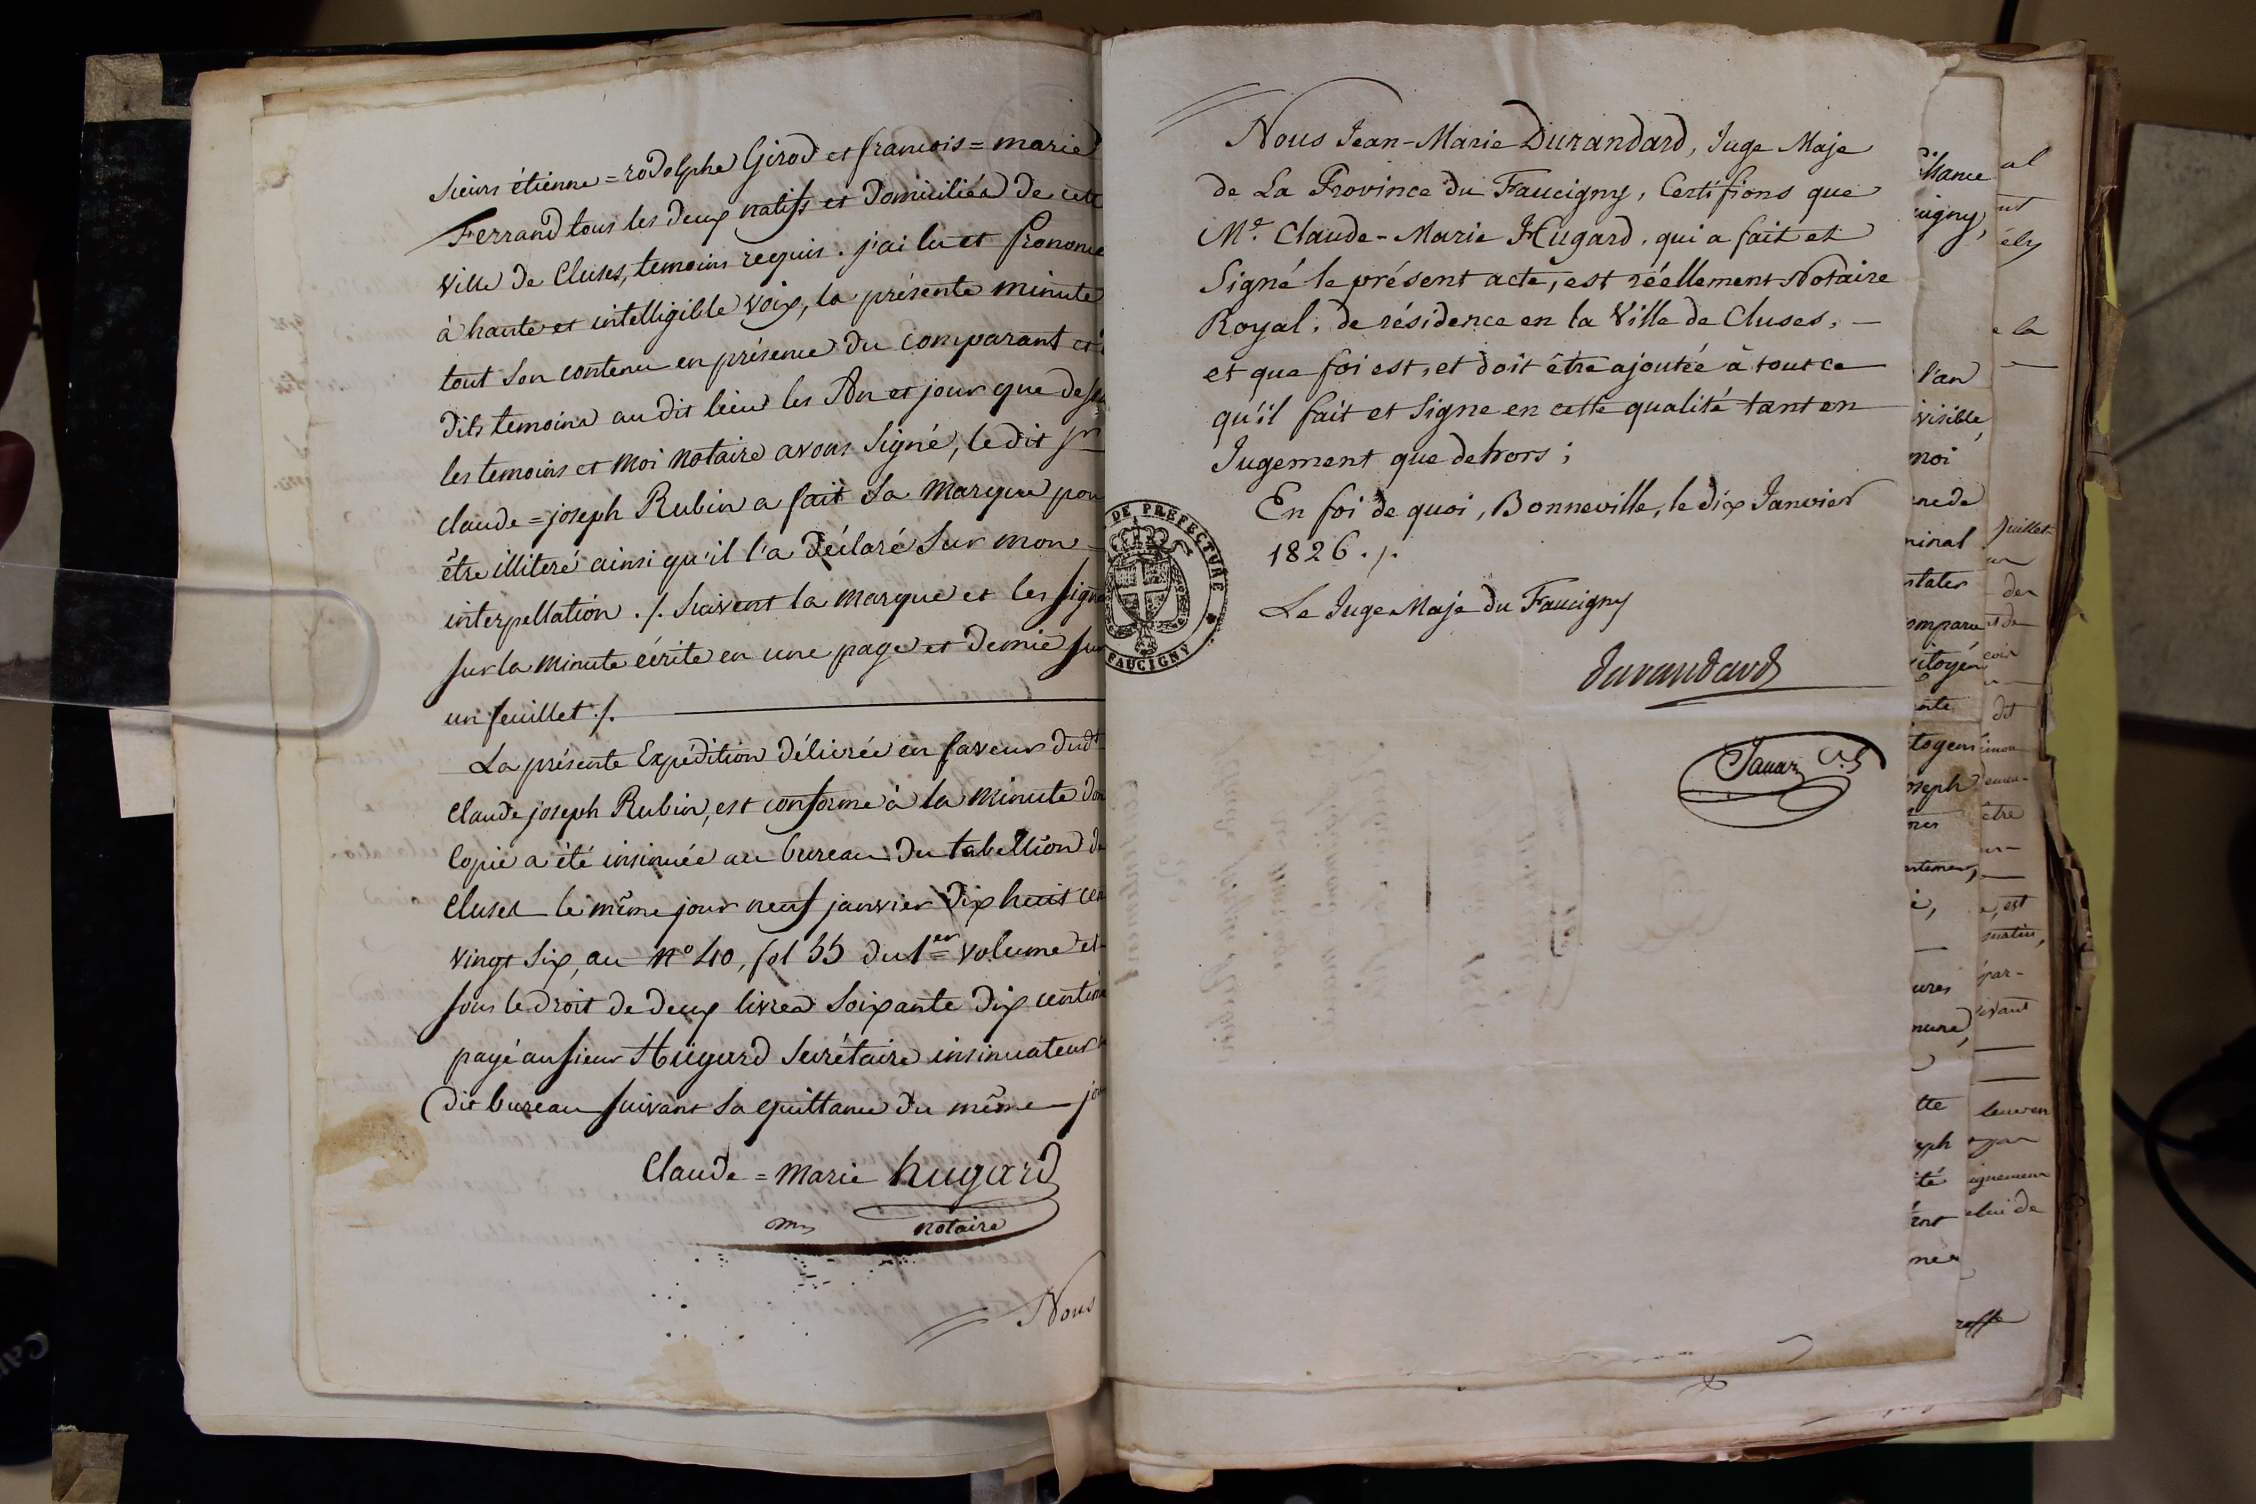 sieurs étienne = rodolphe Girod et francois = marie
Ferrand tous les deux natifs et Domiciliés de cette
ville de Cluses, temoins requis. j'ai lu et prononcé
à haute et intelligible voix, la présente minute
tout son contenu en présence du comparant et
dits temoins au dit lieu les An et jour que dessus
les temoins et moi notaire avons signé, le dit sr
claude = joseph Rubin a fait sa marque pour
être illiteré ainsi qu'il l'a déclaré sur mon =
interpellation ./. Suivent la marque et les sign
sur la minute écrite en une page et demie sur
un feuillet ./.
La présente Expédition délivrée en faveur dudt
claude joseph Rubin, est conforme à la minute don
copie a été insinuée au bureau du tabellion de
Cluses le même jour neuf janvier dix huit cen
vingt six, au n° 40, fol 55 du 1er volume et
sous le droit de deux livres soixante dix centim
payé au sieur Hugard secrétaire insinuateur
dit bureau suivant sa quittance du même jou
Claude = marie hugard
notaire
Nous
Nous Jean-Marie Durandard, Juge Maje
de La Province du Faucigny, Certifions que
Me. Claude-Marie Hugard, qui a fait et
Signé le présent acte, est réellement Notaire
Royal, de résidence en la Ville de Cluses, —
et que foi est, et doit être ajoutée à tout ce
qu'il fait et Signe en cette qualité tant en
Jugement que dehors ;
En foi de quoi, Bonneville, le dix Janvier
1826 ./.
Le Juge Maje du Faucigny
durandard
DE PREFECTURE
FAUCIGNY
l'an
visible,
moi
la
juillet
dit
être